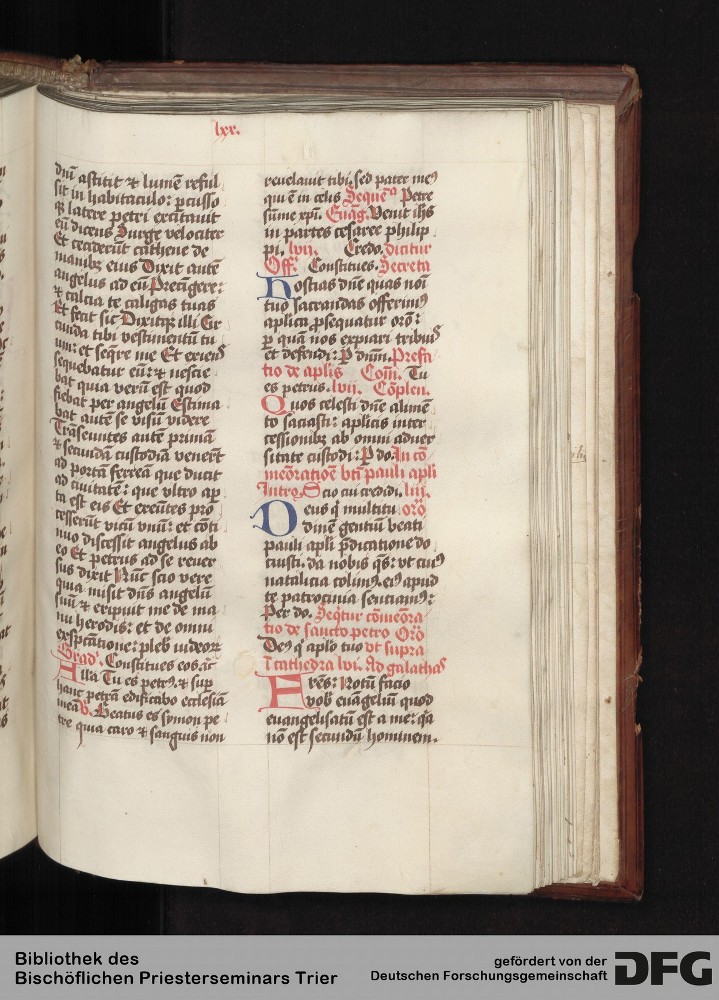 lxx.
dnī astitit et lumē reful
sit in habitaculo: ꝑcusso
qꝫ latere petri excitauit
eū dicens Surge velociter
Et ceciderūt cathene de
manibꝫ eius Dixit autē
angelus ad eū Precīgere:
et calcia te caligas tuas
Et fecit sic Dixitqꝫ illi Cir
cūda tibi vestimentū tu
um: et seqꝛe me Et exiens
sequebatur eū: et nescie
bat quia verū est quod
fiebat per angelū Estima
bat autē se visū videre
Trāseuntes autē primā
et secūdā custodiā venerūt
ad portā ferreā que ducit
ad ciuitatē: que vltro aꝑ
ta est eis Et exeūtes pro
cesserūt vicū vnū: et cōti
nuo discessit angelus ab
eo Et petrus ad se reuer
sus dixit Nūc scio vere
quia misit dn̄s angelū
suū et eripuit me de ma
nu herodis: et de omni
exspectatione: pleb iudeoꝝ
Grad. Constitues eos. ac
Alla Tu es petrꝰ. et sup
hanc petrā edificabo ecclesiā
meā V. Beatus es symon pe
tre quia caro et sanguis non
reuelauit tibi. sed pater meꝰ
qui ē in celis Sequeᵃ Petre
sūme xpī. Euāg. Venit ihs
in partes cesaree philip
pi. lvij. Credo. dicitur
Off Constitues. Secreta
Hostias dn̄e quas noī
tuo sacrandas offerimꝰ
aplica ꝓsequatur orō:
ꝑ quā nos expiari tribuis
et defendi: P dnm̄. Prefa
tio de aplis Com̄. Tu
es petrus. lvij. Cōplen.
Quos celesti dn̄e alimē
to saciasti: aplicis inter
cessionibꝫ ab omni aduer
sitate custodi: P do. In cō
meōratiōe bti pauli apli
Intro. Scio cui credidi. liij.
Deus q multitu. orō
dinē gentiū beati
pauli apli p̄dicatione do
cuisti. da nobis qs: vt cuiꝰ
natalicia colimꝰ. eiꝰ apud
te patrocinia sentiamꝰ:
Per do. Seqtur cōmeōra
tio de sancto petro Orō
Deꝰ q aplo tuo vt supra
ī cathedra lvi. Ad galathas
Frēs: Notū facio
vobꝭ euāgeliū quod
euangelisatū est a me: qa
nō est secundū hominem.
Bibliothek des
Bischöflichen Priesterseminars Trier
gefördert von der
Deutschen Forschungsgemeinschaft
DFG